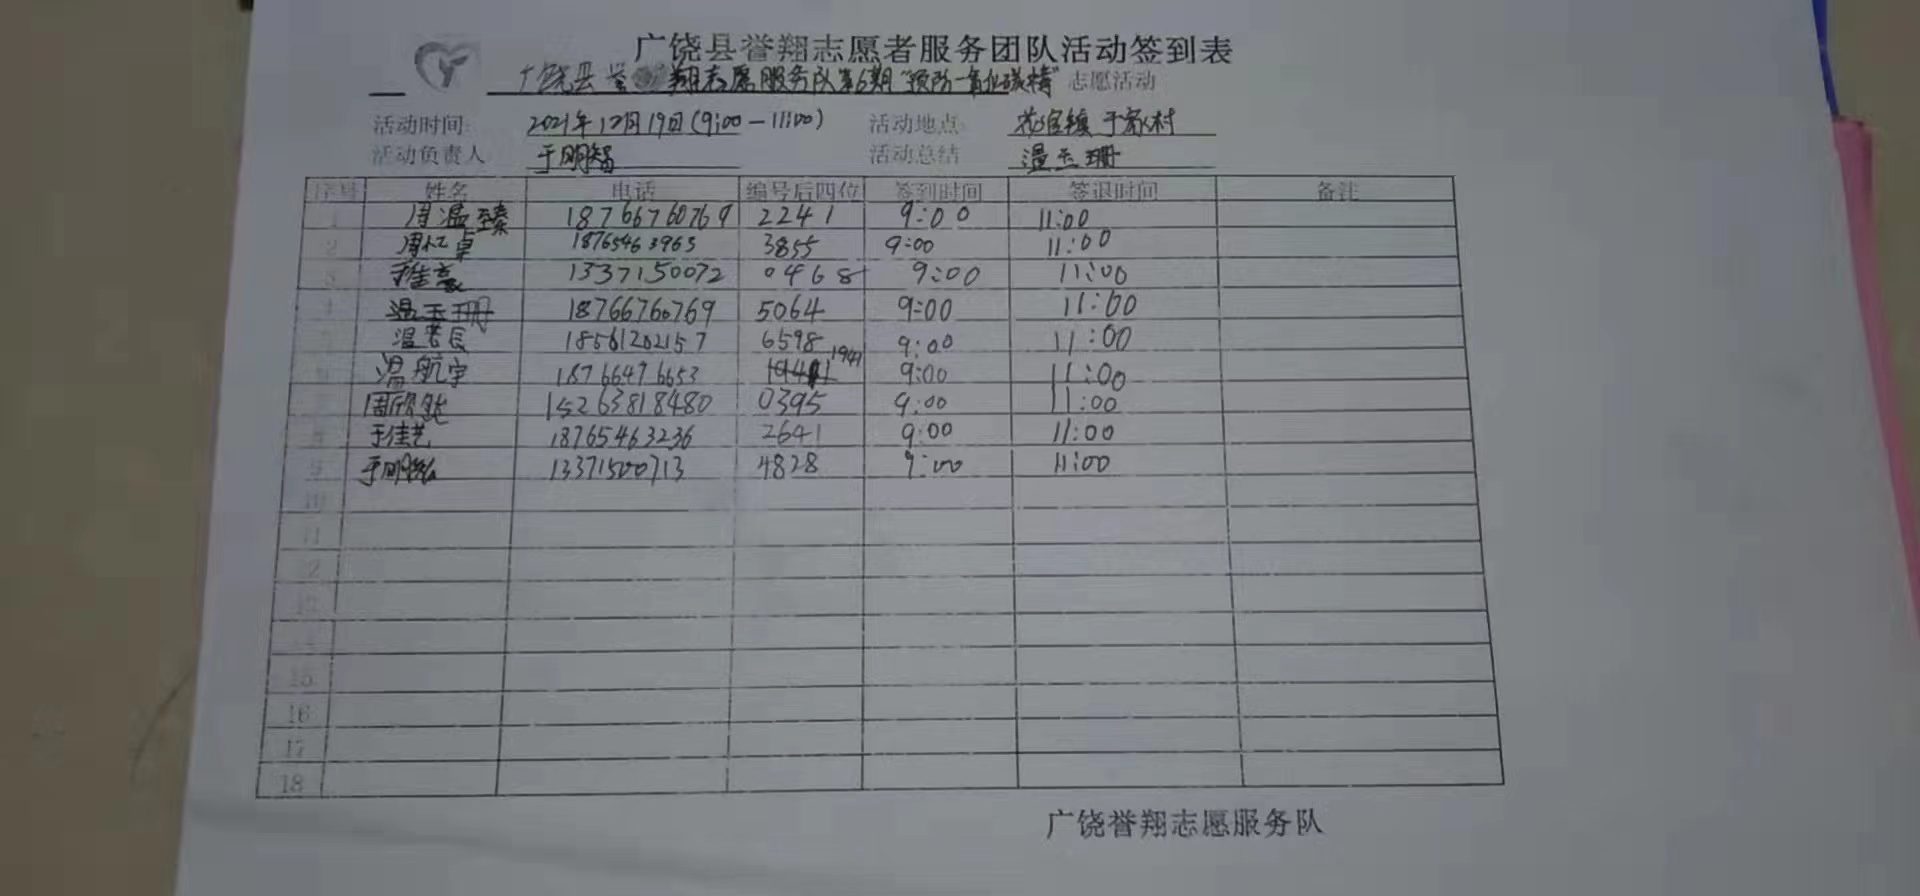 广饶县誉翔志愿者服务团队活动签到表
广饶县誉翔志愿服务队第6期“预防一氧化碳 志愿活动
活动时间: 2021年12月19日(9:00-11:00) 活动地点: 花官镇于家村
活动负责人 于明智 活动总结 温玉珊
序号 姓名 电话 编号后四位 签到时间 签退时间 备注
1 周温臻 18766760769 2241 9:00 11:00
2 18765463963 3855 9:00 11:00
3 1337150072 0468 9:00 11:00
4 温玉珊 18766760769 5064 9:00 11:00
5 18561202157 6598 9:00 11:00
6 温航宇 18766476653 1941 9:00 11:00
7 周欣然 15263818480 0395 9:00 11:00
8 于佳艺 18765463236 2641 9:00 11:00
9 13371500713 4828 9:00 11:00
10
11
12
13
14
15
16
17
18
广饶誉翔志愿服务队